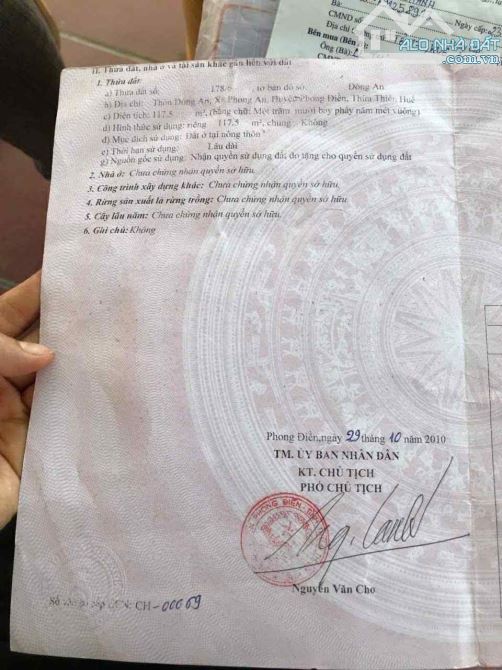 ALO NHÀ ĐẤT
.com.vn
Bà:
CMND số
Ngày cấp:
Địa chỉ
Bên mua (Bên
Ông (Bà)
CMND
II. Thửa đất, nhà ở và tài sản khác gắn liền với đất
1. Thửa đất:
a) Thửa đất số: 178.6 , tờ bản đồ số: Đông An
b) Địa chỉ: Thôn Đông An, Xã Phong An, Huyện Phong Điền, Thừa Thiên Huế
c) Diện tích: 117.5 m², (bằng chữ: Một trăm mười bảy phẩy năm mét vuông)
d) Hình thức sử dụng: riêng 117.5 m², chung Không
đ) Mục đích sử dụng: Đất ở tại nông thôn
e) Thời hạn sử dụng: Lâu dài
g) Nguồn gốc sử dụng: Nhận quyền sử dụng đất do tặng cho quyền sử dụng đất
2. Nhà ở: Chưa chứng nhận quyền sở hữu.
3. Công trình xây dựng khác: Chưa chứng nhận quyền sở hữu.
4. Rừng sản xuất là rừng trồng: Chưa chứng nhận quyền sở hữu.
5. Cây lâu năm: Chưa chứng nhận quyền sở hữu.
6. Ghi chú: Không
Phong Điền, ngày 29 tháng 10 năm 2010
TM. ỦY BAN NHÂN DÂN
KT. CHỦ TỊCH
PHÓ CHỦ TỊCH
Nguyễn Văn Cho
Số vào sổ cấp GCN: CH-00069